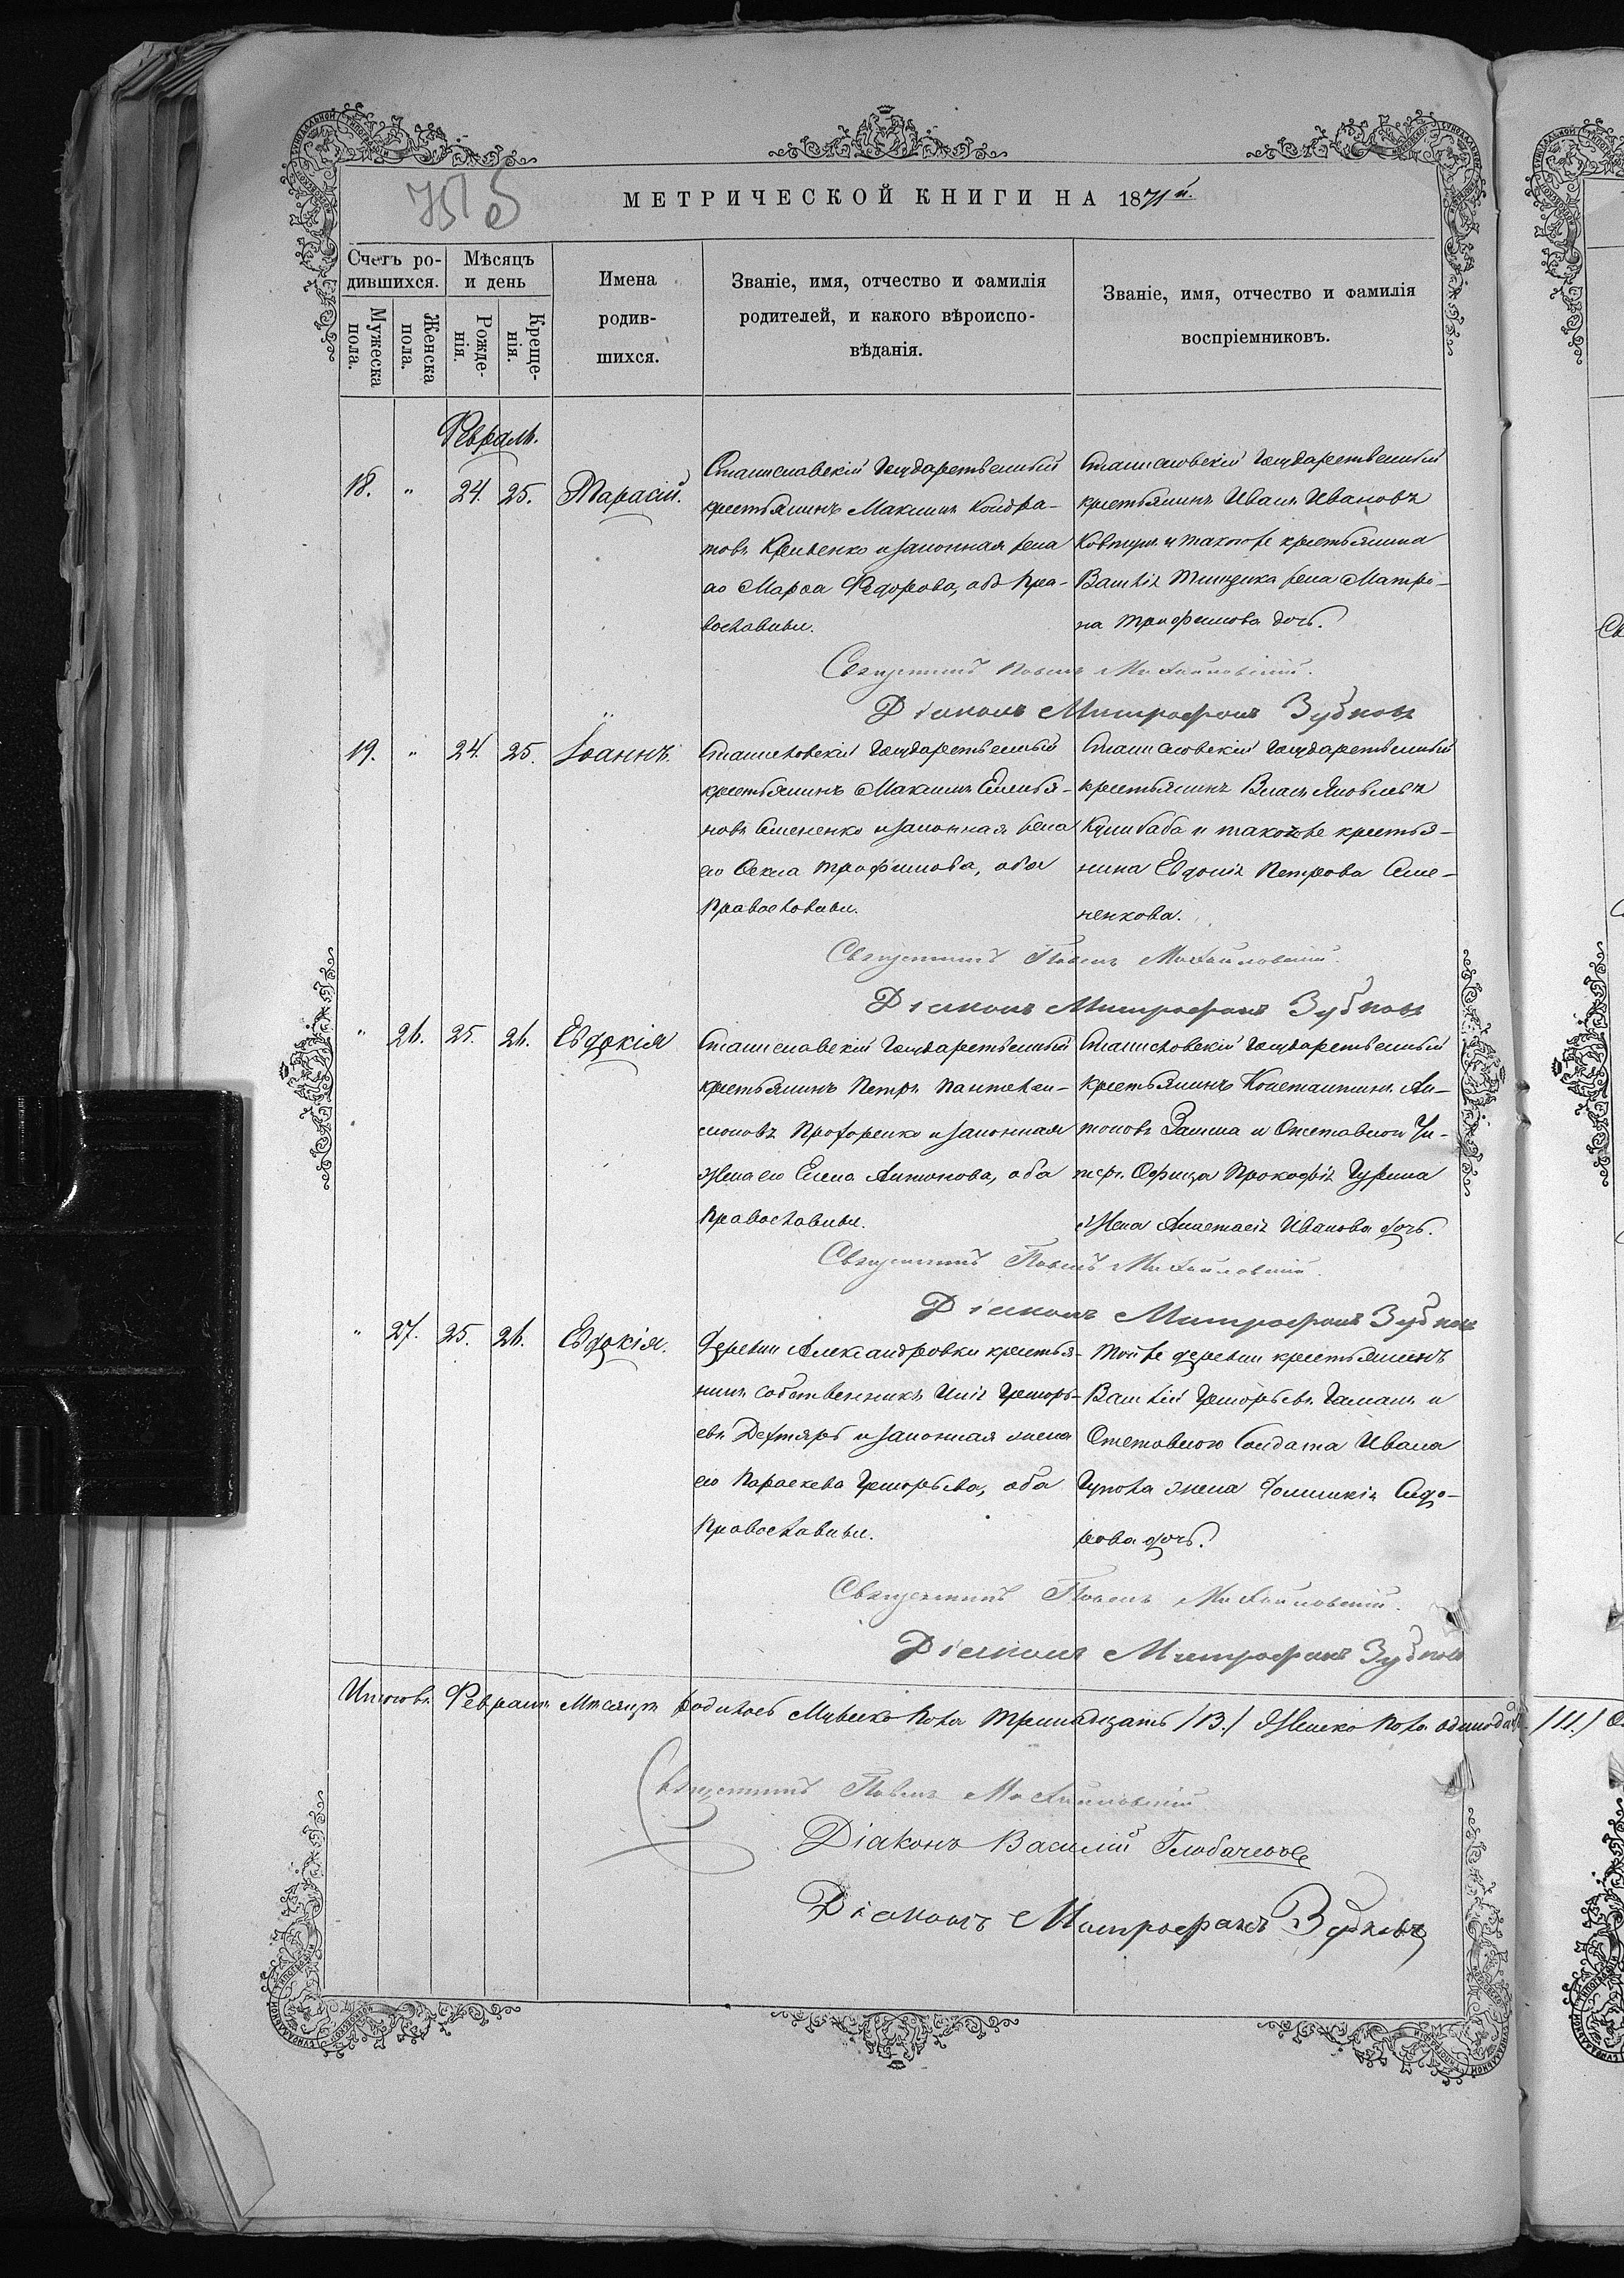 МЕТРИЧЕСКОЙ КНИГИ НА 1871й.
Счетъ ро-
дившихся.
Мѣсяцъ
и день
Имена
родив-
шихся.
Званіе, имя, отчество и фамилія
родителей, и какого вѣроиспо-
вѣданія.
Званіе, имя, отчество и фамилія
воспріемниковъ.
Мужеска
пола.
Женска
пола.
Рожде-
нія.
Креще-
нія.
Февраль.
18. " 24. 25. Тарасій.
Станиславскій Государственный
крестьянинъ Максимъ Кондра-
товъ и законная жена
его Марѳа Федорова, оба Пра-
вославные.
Станиславскій Государственный
крестьянинъ Иванъ Ивановъ
Ковтунъ и такогоже крестьянина
Василія жена Матро-
на Трофимова дочь.
Священникъ Павелъ Михайловскій.
Діаконъ Митрофанъ Зубковъ
19. " 24. 25. Іоаннъ.
Станиславскій Государственный
крестьянинъ Максимъ Емелья-
новъ Семененко и законная жена
его Ѳекла Трофимова, оба
Православные.
Станиславскій Государственный
крестьянинъ Власъ Яковлевъ
Кулибаба и такогоже крестья-
нина Евдокія Петрова Семе-
ненкова.
Священникъ Павелъ Михайловскій.
Діаконъ Митрофанъ Зубковъ
" 26. 25. 26. Евдокія
Станиславскій Государственный
крестьянинъ Петръ Пантелеи-
моновъ Прохоренко и законная
жена его Елена Антонова, оба
Православные.
Станиславскій Государственный
крестьянинъ Константинъ Ан-
тоновъ и Отставнаго Ун-
теръ Офицера Прокофія Гурина
жена Анастасія Иванова дочь.
Священникъ Павелъ Михайловскій.
Діаконъ Митрофанъ Зубковъ
" 27. 25. 26. Евдокія.
Деревни Александровки крестья-
нинъ собственникъ Григорь-
евъ Дехтярь и законная жена
его Параскева Григорьева, оба
Православные.
Тойже деревни крестьянинъ
Василій Григорьевъ Гаманъ и
Отставного Солдата Ивана
жена Домникія Сидо-
рова дочь.
Священникъ Павелъ Михайловскій.
Діаконъ Митрофанъ Зубковъ
Итого въ Февралѣ Мѣсяцѣ родилось Мужеско пола тринадцать /13./ Женско пола одинадцать /11./
Священникъ Павелъ Михайловскій
Діаконъ Василій
Діаконъ Митрофанъ Зубковъ